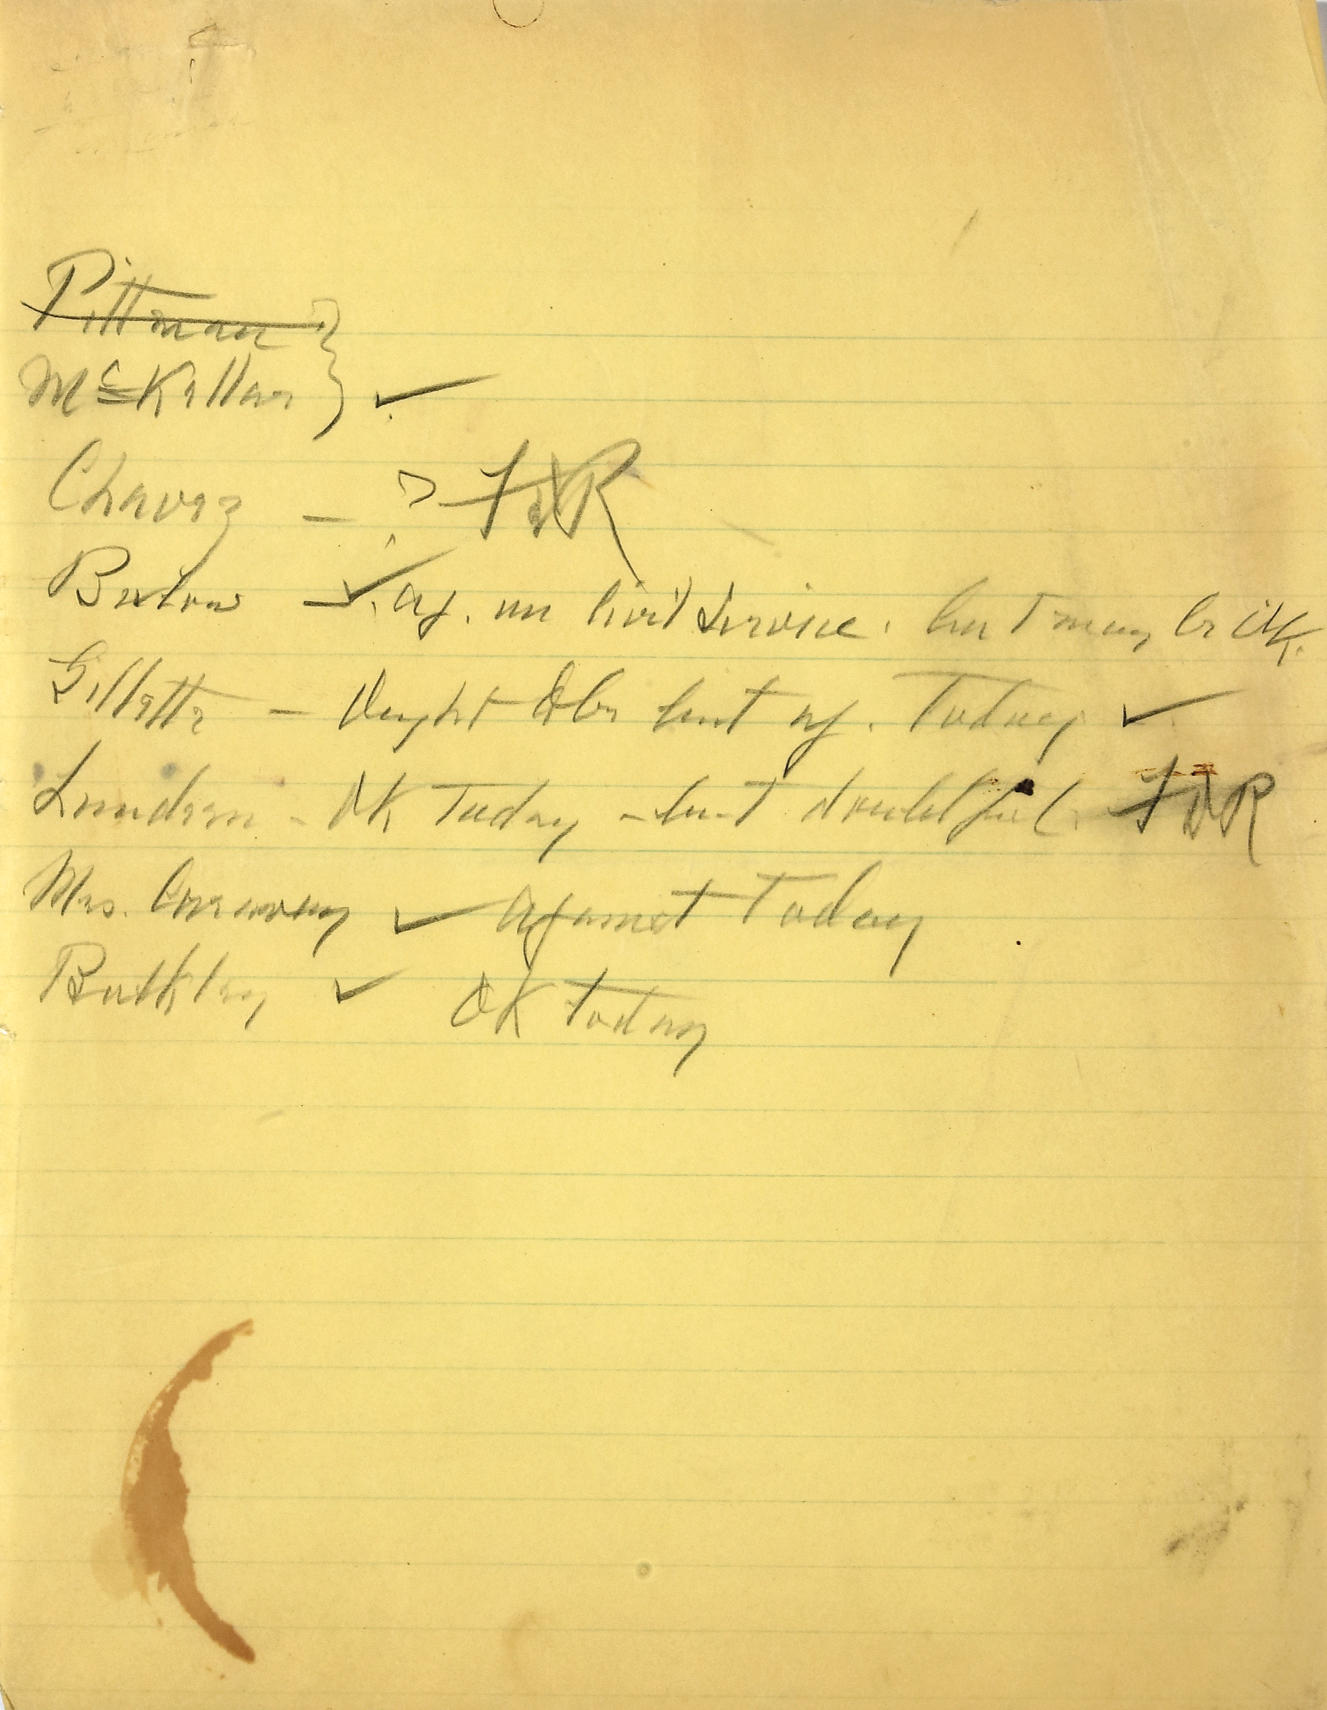 Pittman
McKellar } ✓
Chavez - ? FDR
Bulow - ✓ . ag. on Civil Service. but may be OK.
Gillette - Ought to be but ag. Today ✓
Lundeen - OK Today - but doubtful. FDR
Mrs. Caraway ✓ against Today
Bulkley ✓ OK Today